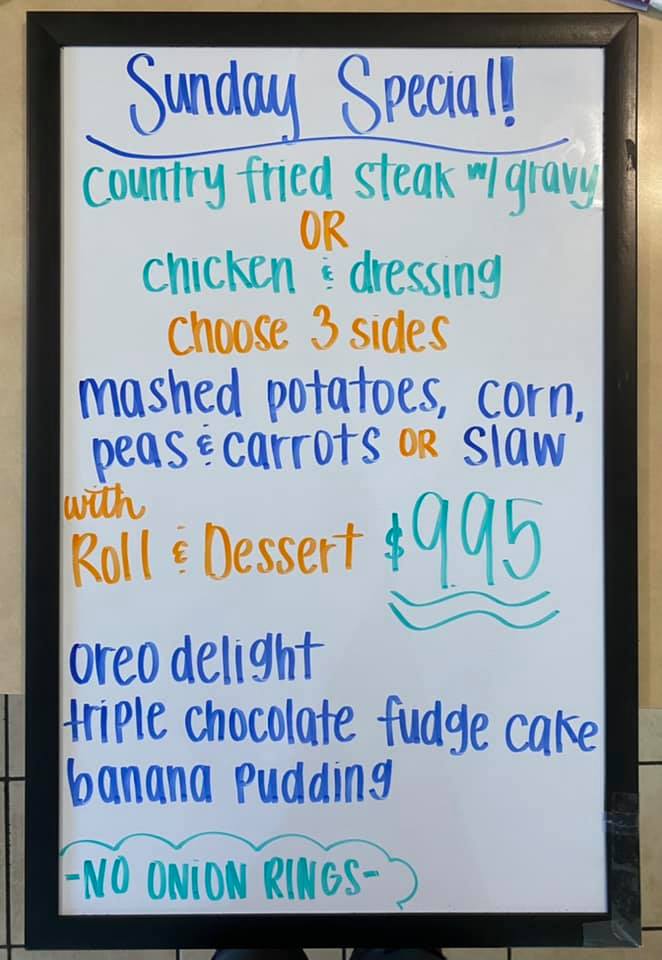 Sunday Special!
country fried steak w/ gravy
OR
chicken & dressing
choose 3 sides
mashed potatoes, corn,
peas & carrots OR slaw
with
Roll & Dessert $9.95
oreo delight
triple chocolate fudge cake
banana pudding
-NO ONION RINGS-